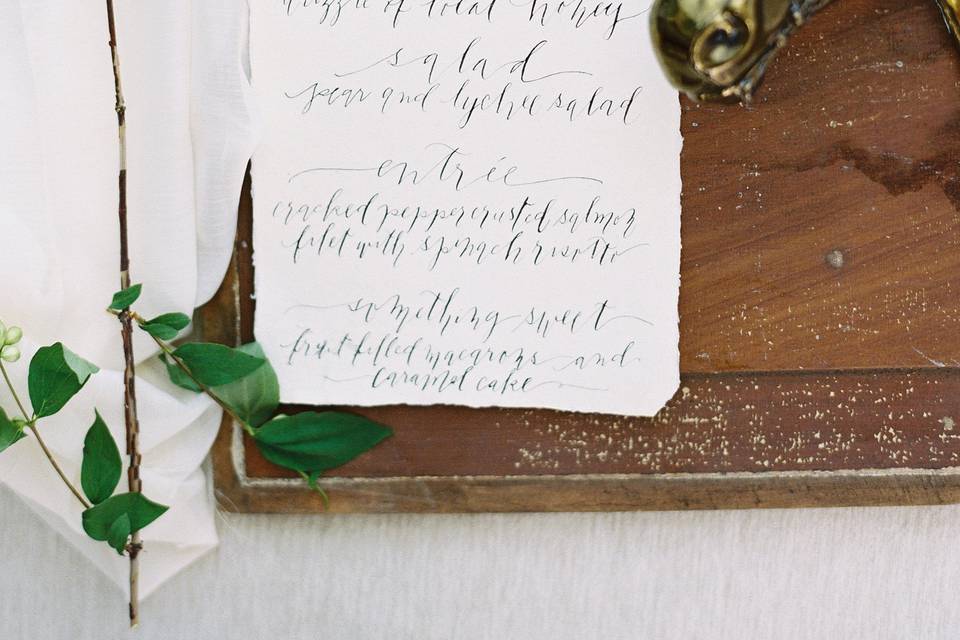 drizzle of local honey
salad
pear and lychee salad
entrée
cracked pepper crusted salmon
filet with spinach risotto
something sweet
fruit filled macarons and
caramel cake